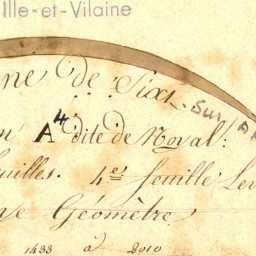 Ille-et-Vilaine
ne de Sixt sur A
A4 dite de Noyal:
feuilles. 4es feuille Lev
Géomètre
1433 à 2010